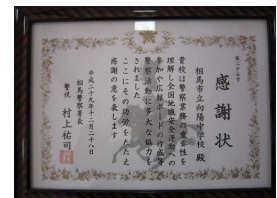 第二十五号
感謝状
相馬市立向陽中学校 殿
貴校は警察業務の重要性を
理解し全国地域安全運動への
参加や広報ボードの作成等
警察活動に多大な協力を
されました
ここにその功労をたたえ
感謝の意を表します
平成二十九年十二月二十八日
相馬警察署長
警視 村上裕司